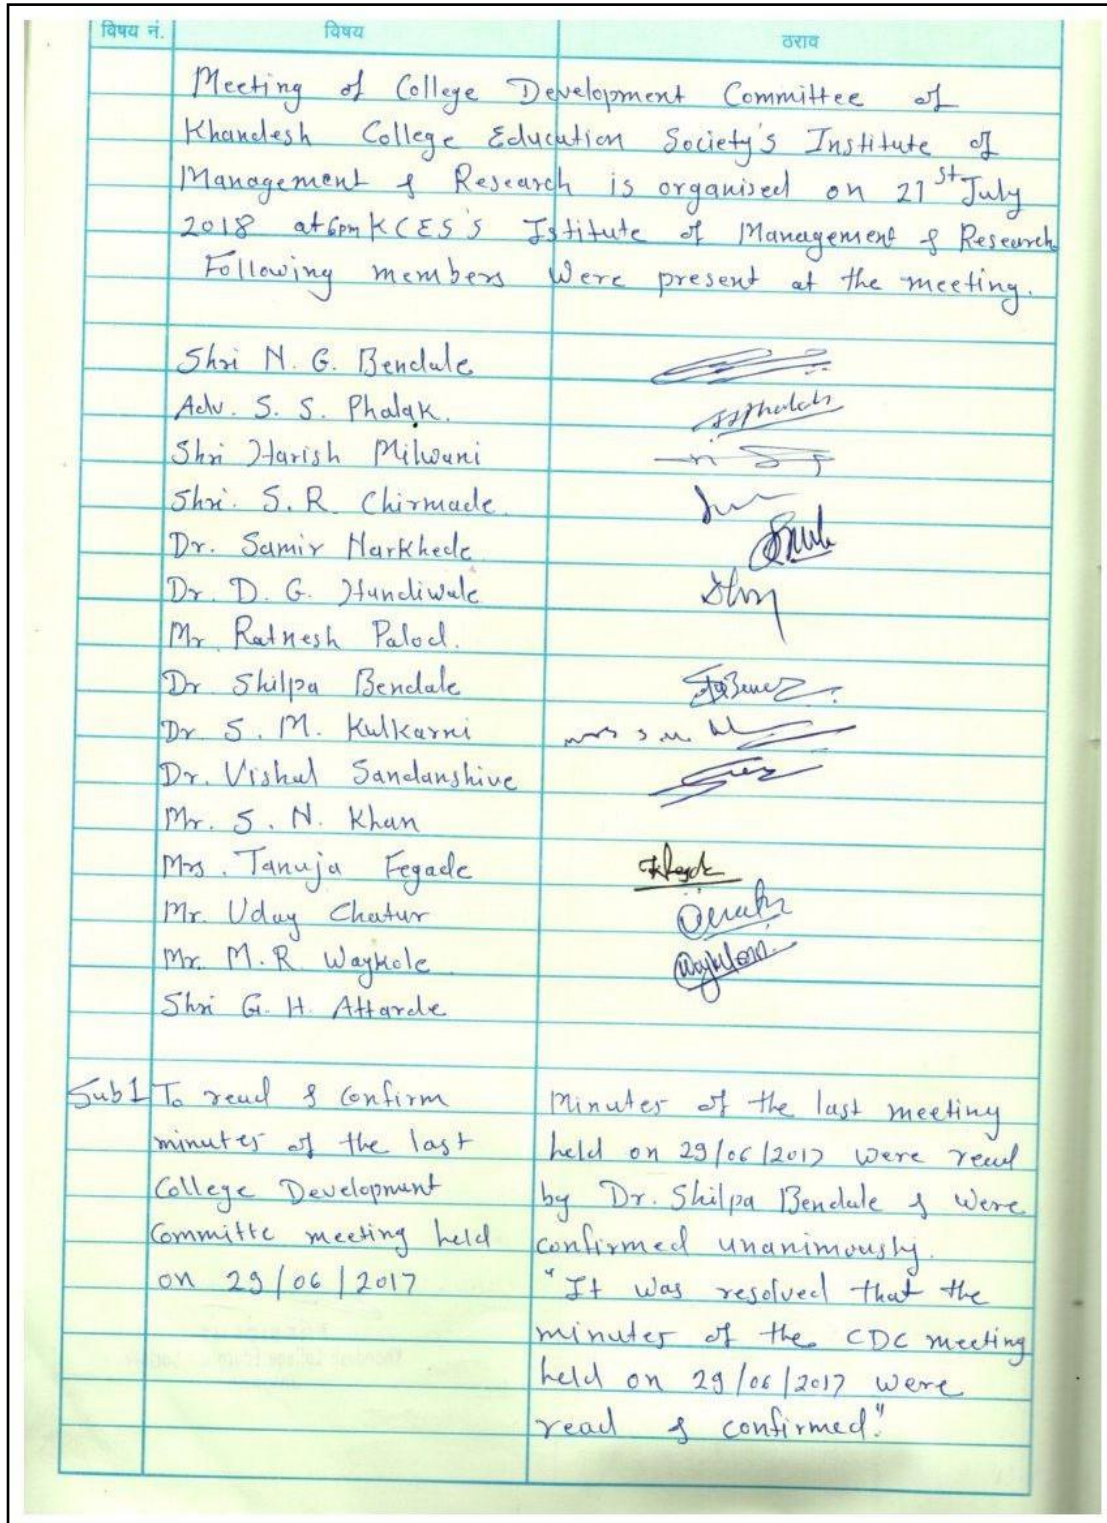 विषय नं. विषय ठराव
Meeting of College Development Committee of
Khandesh College Education Society's Institute of
Management & Research is organised on 21st July
2018 at 6pm KCES's Istitute of Management & Research
Following members were present at the meeting.
Shri N. G. Bendale
Adv. S. S. Phalak.
Shri Harish Milwani
Shri. S. R. Chirmade.
Dr. Samir Narkhede
Dr. D. G. Hundiwale
Mr Ratnesh Palod.
Dr. Shilpa Bendale
Dr S. M. Kulkarni
Dr. Vishal Sandanshive
Mr. S. N. Khan
Mrs. Tanuja Fegade
Mr. Uday Chatur
Mr. M. R. Waykole
Shri G. H. Attarde
Sub 1 To read & confirm
minutes of the last
College Development
Committe meeting held
on 29/06/2017
Minutes of the last meeting
held on 29/06/2017 were read
by Dr. Shilpa Bendale & were
confirmed unanimously.
"It was resolved that the
minutes of the CDC meeting
held on 29/06/2017 were
read & confirmed."